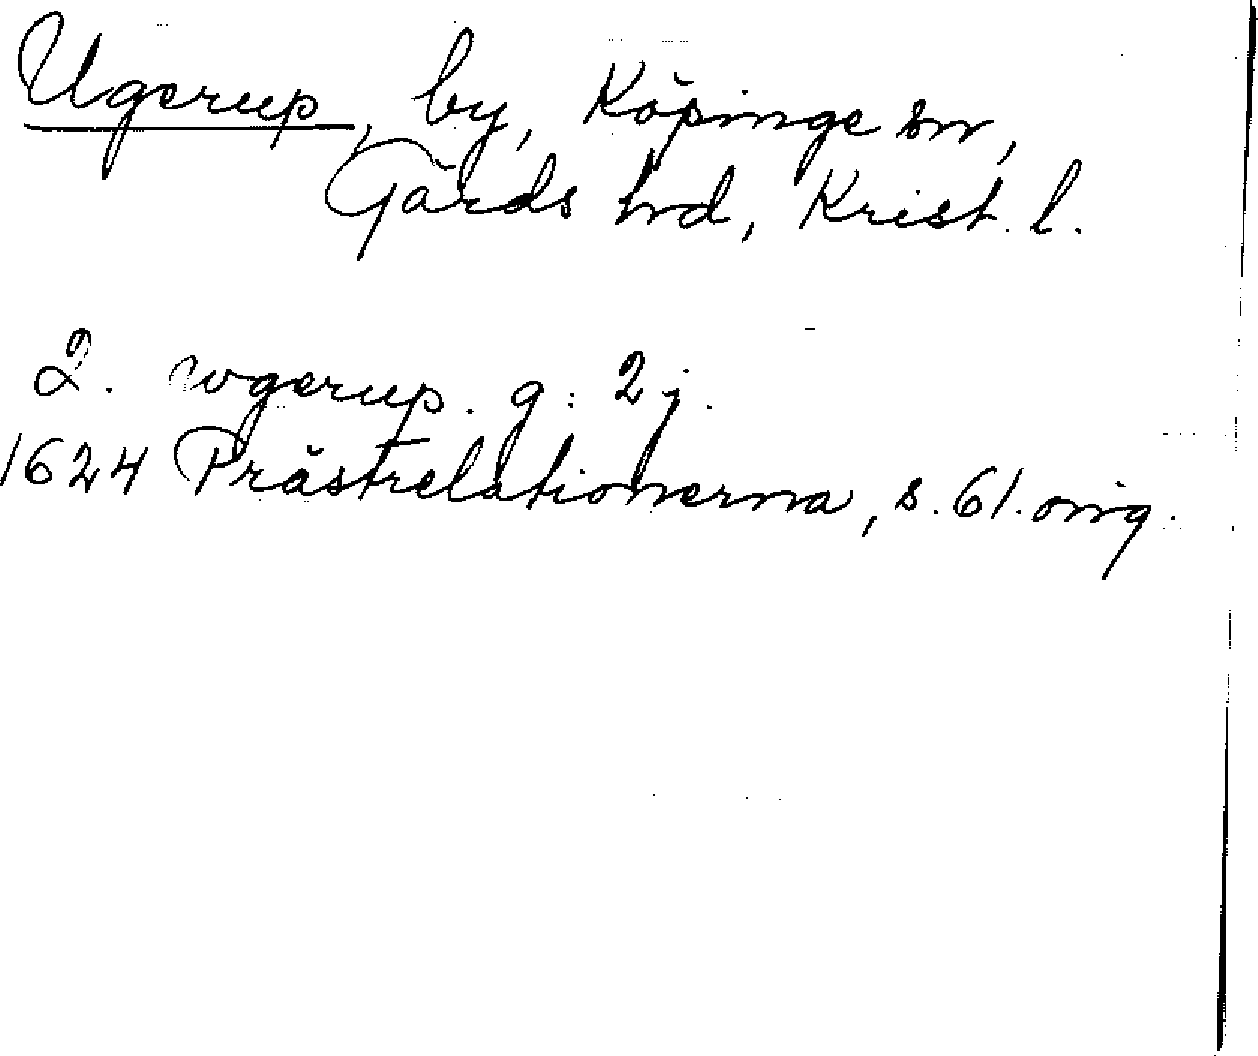 Ugerup, by, Köpinge sn,
Gärds hrd, Krist. l.
2. wgerup. g: 2 j.
1624 Prästrelationerna, s. 61. orig.